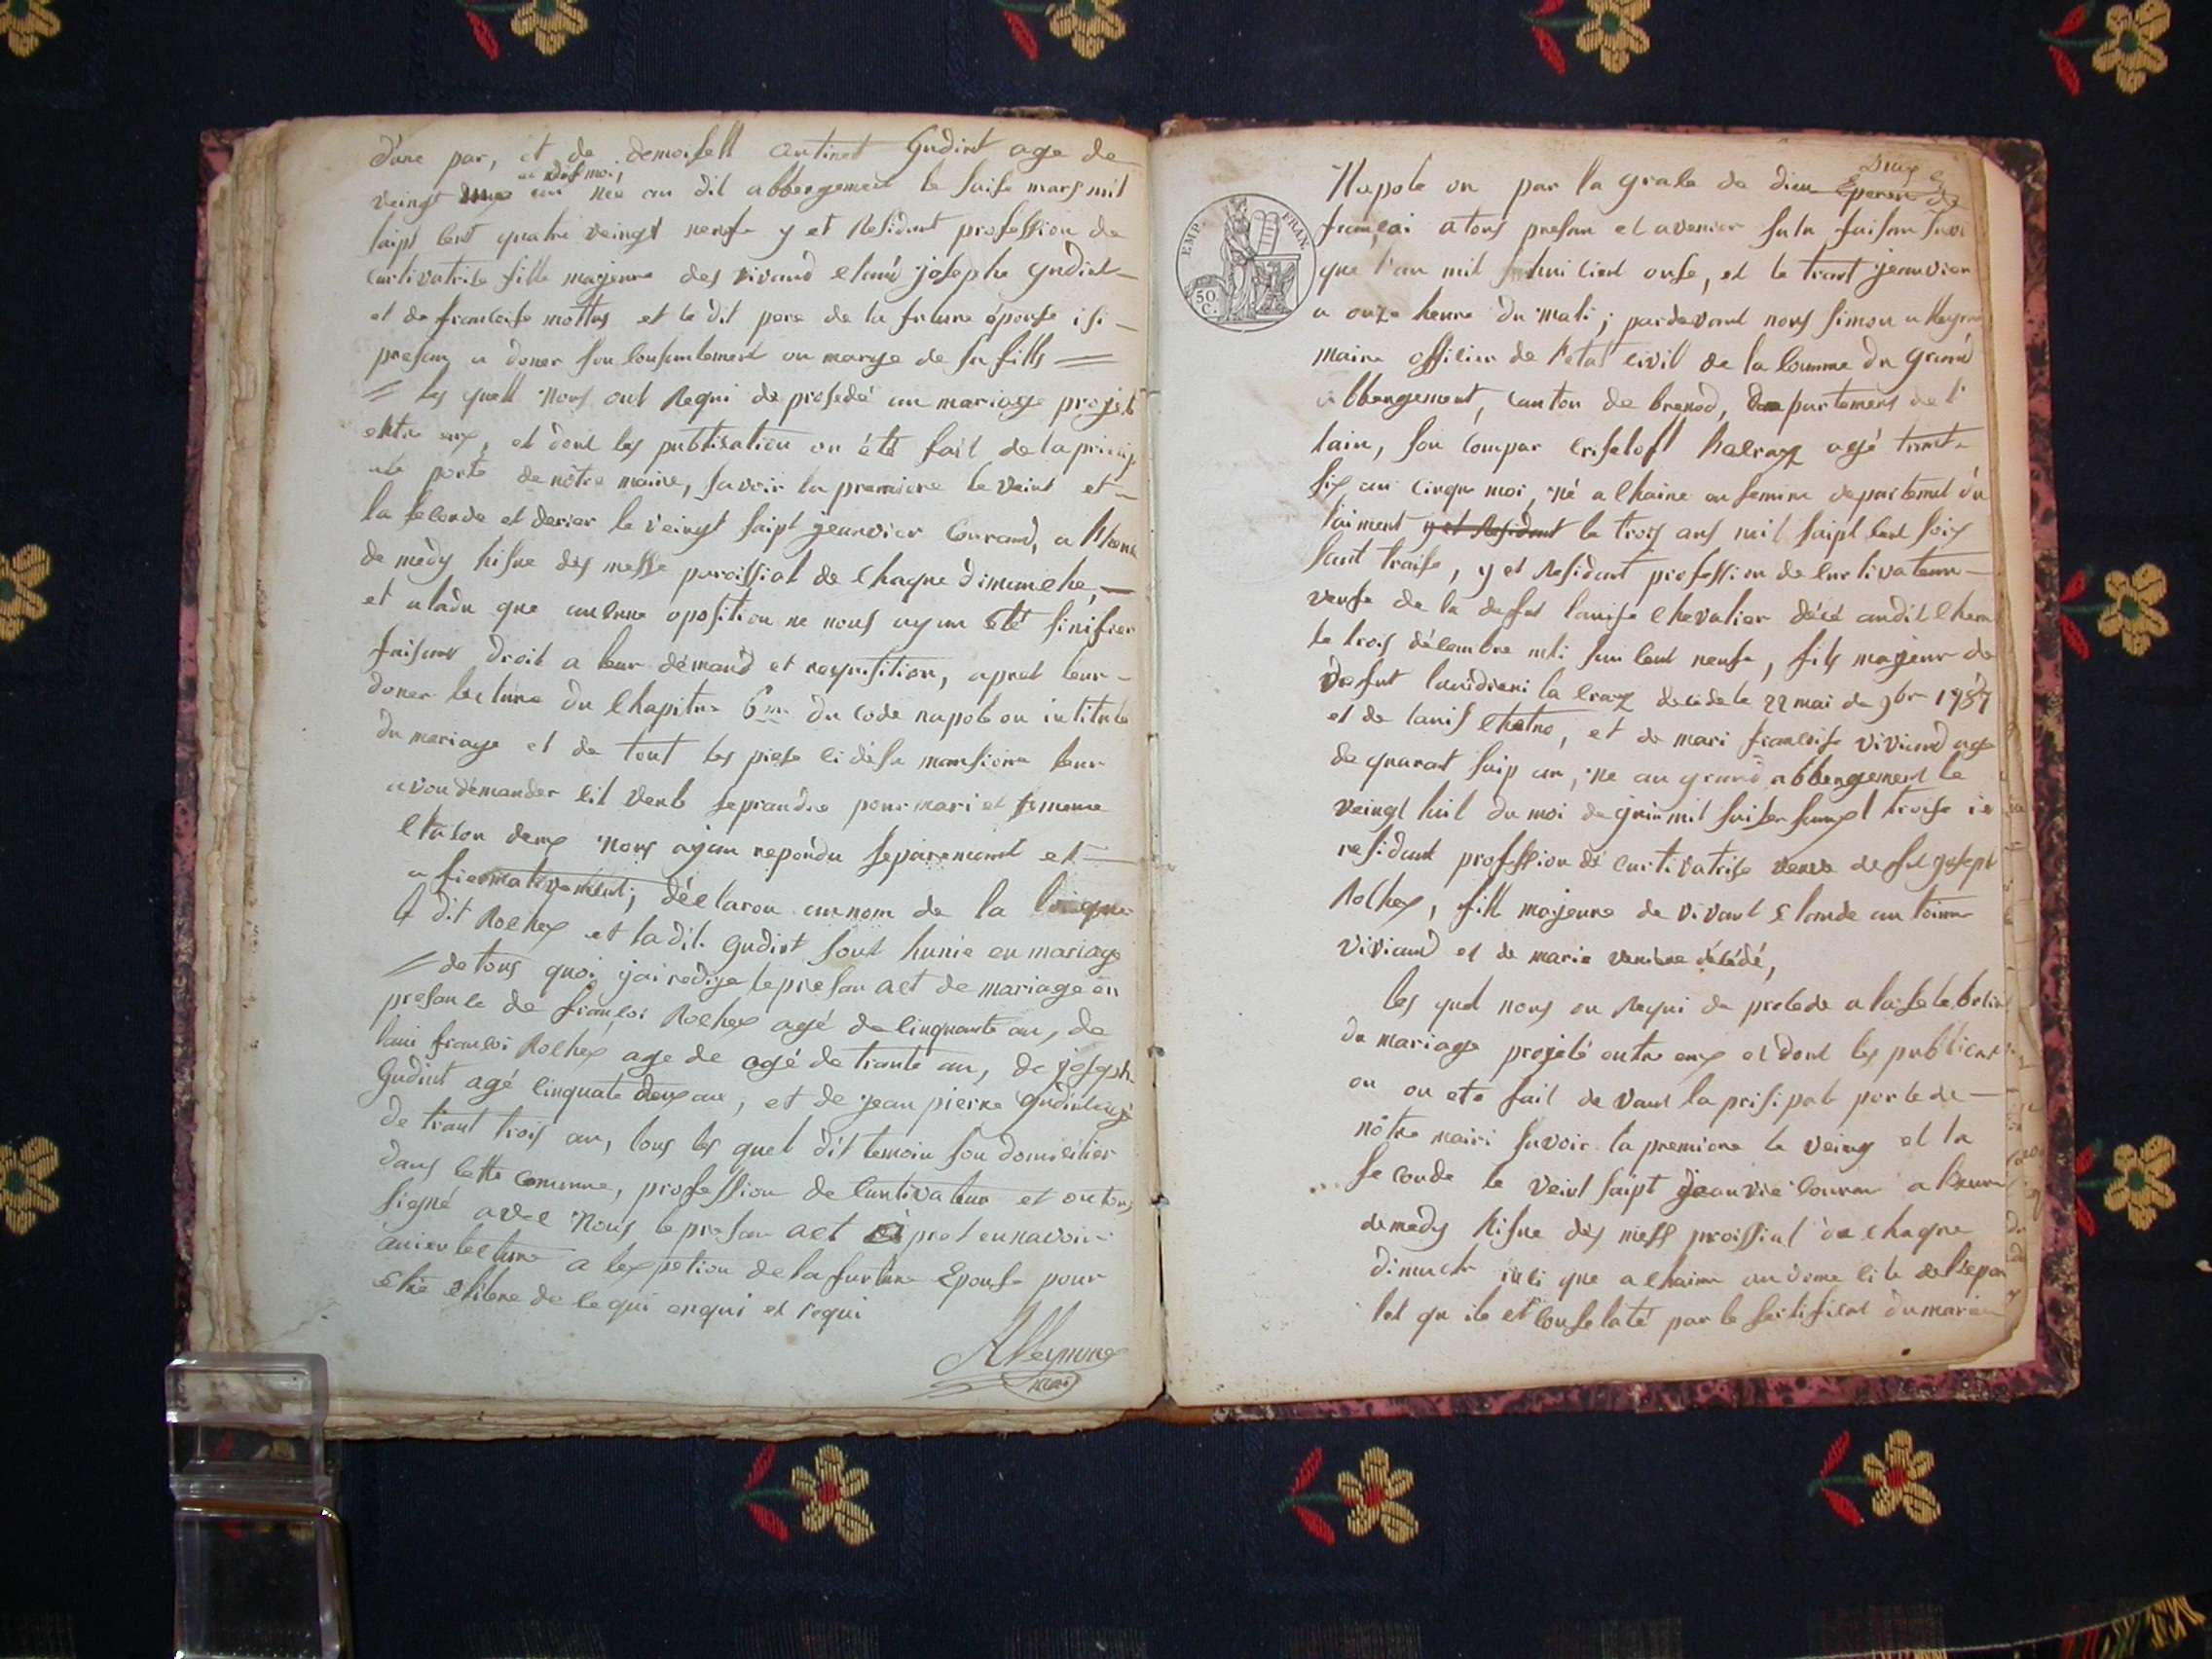 d'une par, et de demoisell antinet Gudint age de
veingt an et dix moi, née au dit abbergement le saise mars mil
saipt cent quatre veingt neufe y et Residant profession de
curtivatrise fille majeure des vivand claud josephe Gudint
et de francoise mottas et le dit pere de la future épouse isi
presan a doner son consentement au marge de sa fills
les quell nous ont Requi de prosedé au mariage projeté
entre eux, et dont les publication on été fait de la princip
ale porte de nôtre mairie, savoir la premiere le veint et
la seconde et derier le veingt saipt jeanvier courand, a l'heure
de medy hisue des messe paroissial de chaque dimanche,
et atadu que aucune oposition ne nous ayan été sinifier
faisant droit a leur démand et requisition, apret leur
doner lecture du chapitre 6me du code napoleon intitule
du mariage et de tout les piese ci désu mansione leur
avon démander sil veule se prandre pour mari et femme
chacon deux nous ayan repondu separemant et
afiermativement; déclaron au nom de la loi que
le dit Rochex et la dit Gudint sont hunie en mariage
de tous quoi j'ai redige le presan act de mariage en
presance de françoi Rochex agé de cinquante an, de
laui françoi Rochex age de agé de trante an, de joseph
Gudint agé cinquate deux an, et de jean pierre Gudint agé
de trant trois an, tous les quel dit temoin son domicilier
dans cette commune, profession de curtivateur et on tous
signé avec nous le presan act apret en navoir
anier lecture a lexpetion de la furture Epouse pour
etre ilitere de ce qui enqui et requi
Alleymone
maire
deux
Napoleon par la grase de dieu Eperen de
françai a tous presan et avenir salu faison savoi
que l'an mil hui cient onse, et le trant jeanvier
a onze heure du mati; pardevant nous simon alleymo
maire officier de l'etat civil de la coumme du grand
abbergement, canton de brenod, departement de l'
lain, son compar crisetofl halraz agé trant
six an cinque moi, né a lhaine ou semine departemet du
laiment y et Residant le trois ans mil saipt cent sois
sant traise, y et Residant profession de curtivateur
veufe de la defut lauise chevalier décé audit chem
le trois décembre mli hui cent neufe, fils majeur de
défut laudieni la craz decéde le 22 mai de 9br 1787
et de lauis chatne, et de mari francoise viviand age
de quarat saip an, né au grand abbergement le
veingt huit du moi de juin mil soisansaipt troise ie
residant profession de curtivatrise veuve defut joseph
Rochex, fill majeure de vivant claude antoine
viviand et de marie veniere décédé,
les quel nous on Requi de procede a la selebration
du mariage projeté entre eux et dont les publicat
on on ete fait de vant la prisipale porte de
nôtre mairi savoir la premiere le veing et la
seconde le veint saipt jeanvie couran a l'heure
de medy hisue des mess proissial de chaque
dimach isli que a lhaine au domicile de l'epou
let qu ile et conselaté par le sertificat du maire
EMP. FRAN.
50
C.